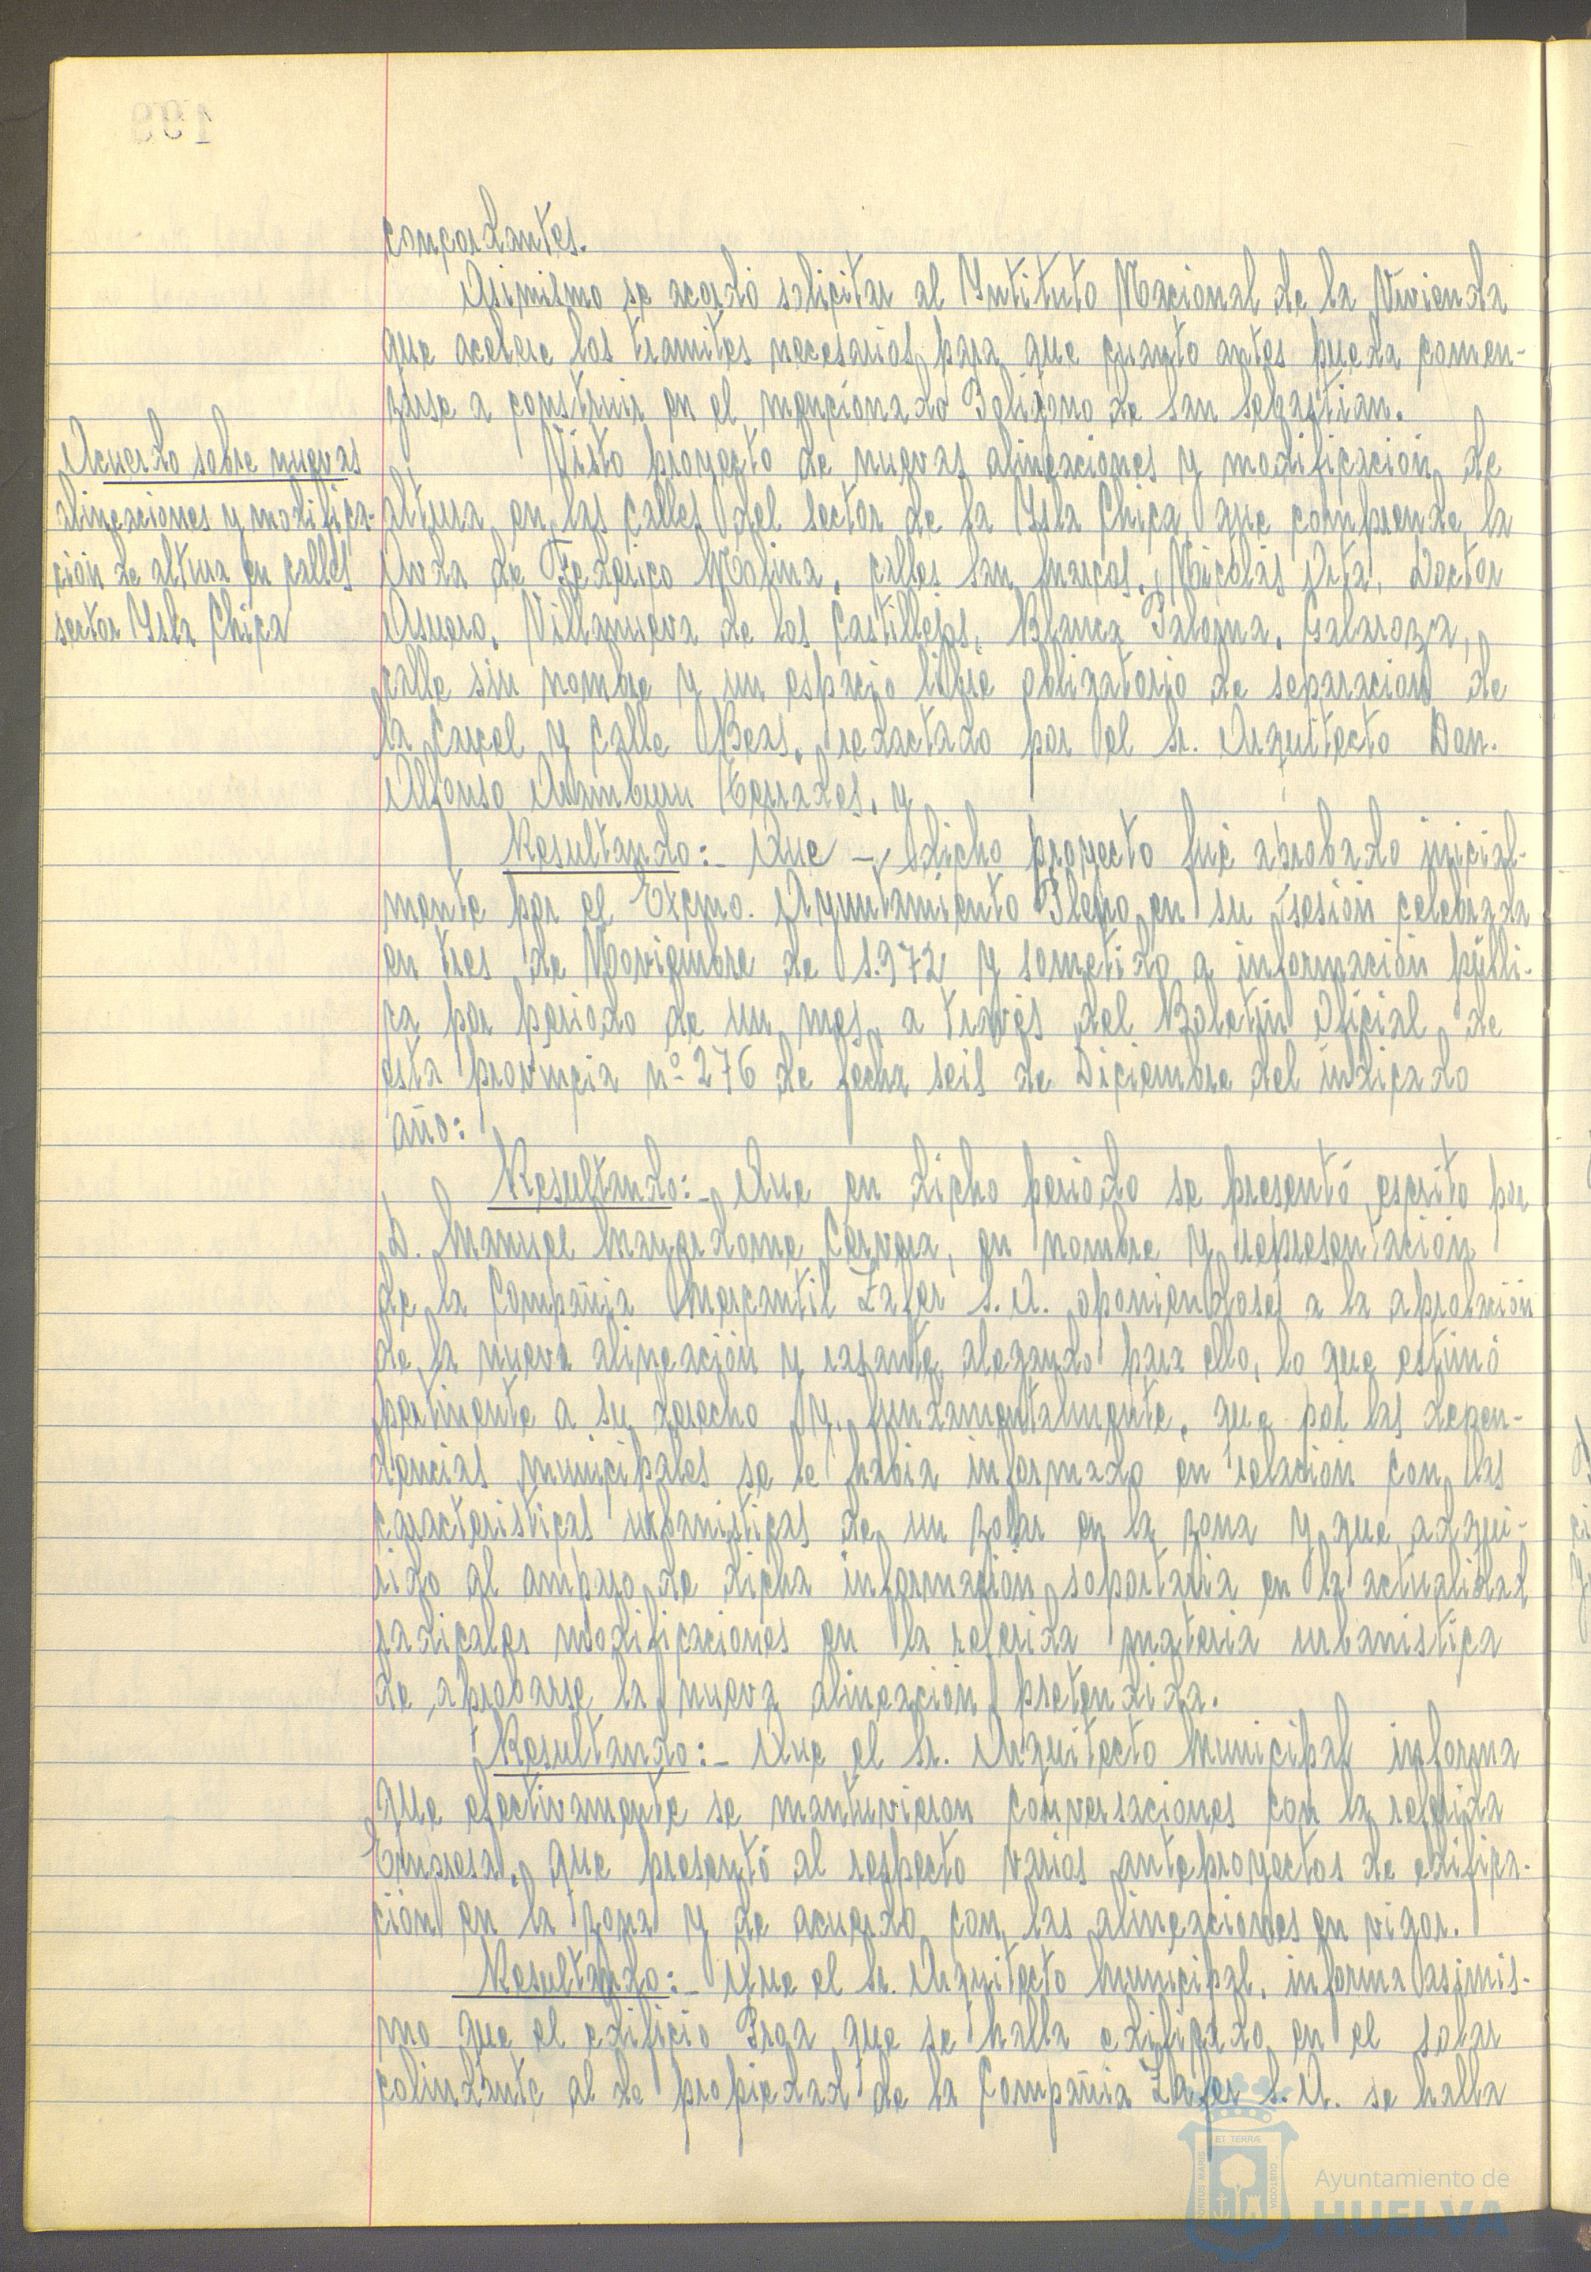 concordantes.
Asimismo se acordó solicitar al Yntituto Nacional de la Vivienda
que acelere los tramites necesarios para que cuanto antes pueda comen-
zarse a construir en el mencionado Poligono de San Sebastian.
Acuerdo sobre nuevas
alineaciones y modifica-
ción de altura en calles
sector Ysla Chica
Visto proyecto de nuevas alineaciones y modificación de
altura en las calles del sector de la Ysla Chica que comprende la
Avda de Federico Molina, calles San Marcos, Nicolás Orta, Doctor
Asuero, Villanueva de los Castillejos, Blanca Paloma, Galaroza,
calle sin nombre y un espacio libre obligatorio de separación de
la Carcel y calle Beas, redactado por el Sr. Arquitecto Don.
Alfonso Aramburu Terrades, y
Resultando:- Que - dicho proyecto fué aprobado inicial-
mente por el Excmo. Ayuntamiento Pleno en su sesión celebrada
en tres de Noviembre de 1.972 y sometido a información públi-
ca por periodo de un mes a través del Boletín Oficial de
esta provincia nº 276 de fecha seis de Diciembre del indicado
año:
Resultando:- Que en dicho periodo se presentó escrito por
D. Manuel Mayordomo Cervera, en nombre y representación
de la Compañia Mercantil Zafer S.A. oponiendose a la aprobación
de la nueva alineación y rasante alegando para ello, lo que estimó
pertinente a su derecho y, fundamentalmente, que por las depen-
dencias municipales se le habia informado en relación con las
caracteristicas urbanisticas de un zolar en la zona y que adqui-
rido al amparo de dicha información soportaria en la actualidad
radicales modificaciones en la referida materia urbanistica
de aprobarse la nueva alineación pretendida.
Resultando:- Que el Sr. Arquitecto Municipal informa
que efectivamente se mantuvieron conversaciones con la referida
Empresa, que presentó al respecto varios anteproyectos de edifica-
ción en la zona y de acuerdo con las alineaciones en vigor.
Resultando:- Que el Sr. Arquitecto Municipal, informa asimis-
mo que el edificio Proa que se halla edificado en el solar
colindante al de propiedad de la Compañia Zafer S.A. se halla
Ayuntamiento de
HUELVA